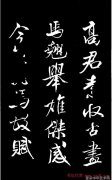 高君素收古畫
馬翹舉雄傑感
今
馬故賦